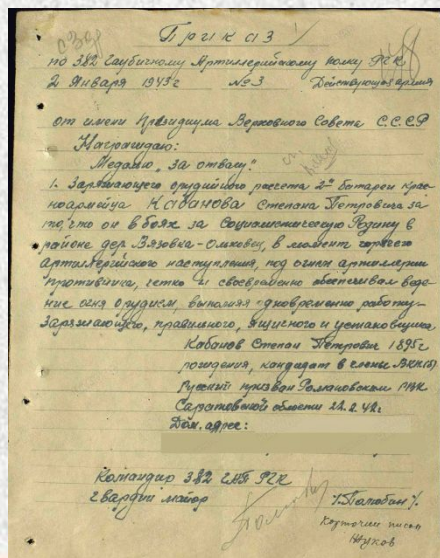 Приказ
по 382 Гаубичному Артиллерийскому полку РГК
2 Января 1943г №3 Действующая армия
от имени Президиума Верховного Совета С.С.С.Р
Награждаю:
Медалью "За отвагу":
1. Заряжающего орудийного расчета 2й батареи крас-
ноармейца Кабанова Степана Петровича за
то, что он в боях за Социалистическую Родину в
районе дер Вязовка - в момент
артиллерийского наступления, под огнем артиллерии
противника, четко и своевременно обеспечивал веде-
ние огня орудием, выполняя одновременно работу
Заряжающего, правильного, ящичного и установщика
Кабанов Степан Петрович 1895г
рождения, кандидат в члены ВКП(б)
Русский призван Романовским РВК
Саратовской области 22.2.42г
Дом. адрес:
Командир 382 ГАП РГК
гвардии майор
Карточки писал
Жуков